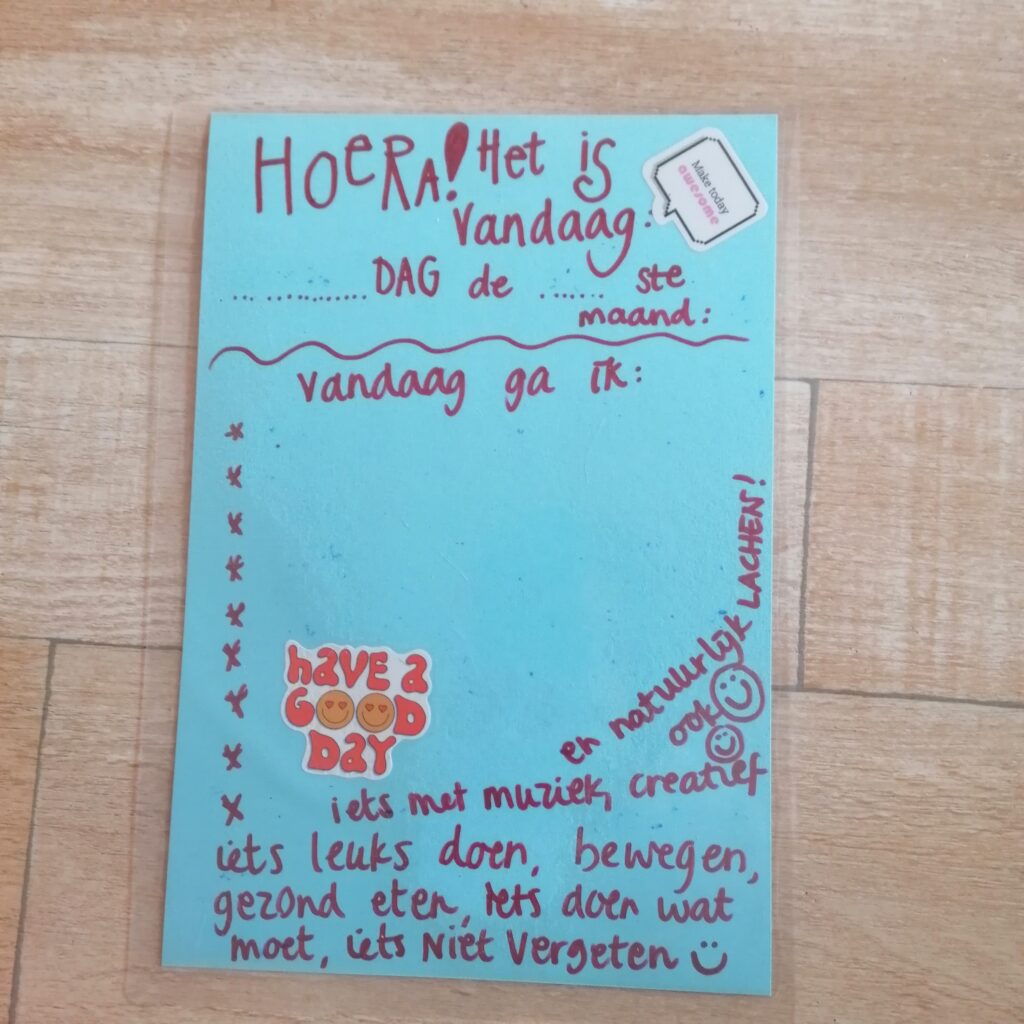 HOERA! Het is
vandaag:
Make today
awesome
... ........... DAG de ...... ste
maand:
vandaag ga ik:
*
*
*
*
*
*
*
*
x
have a
GOOD
Day
en natuurlijk LACHEN!
ook
iets met muziek, creatief
iets leuks doen, bewegen,
gezond eten, iets doen wat
moet, iets Niet Vergeten